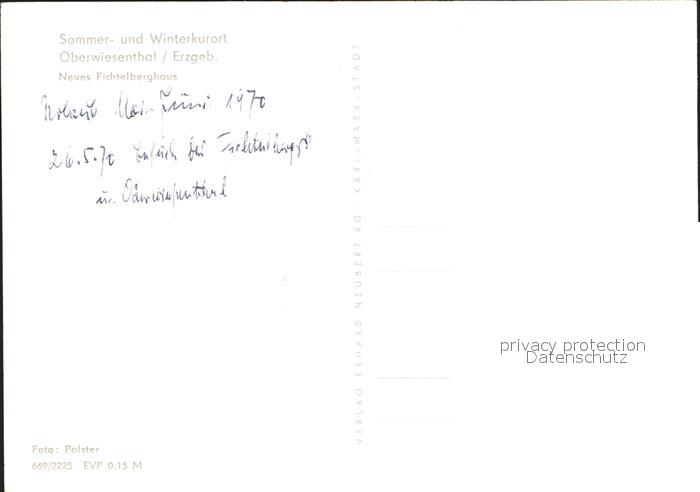 Sommer- und Winterkurort
Oberwiesenthal / Erzgeb.
Neues Fichtelberghaus
Urlaub Mai-Juni 1970
26.5.70 Besuch des Fichtelbergs
u. Oberwiesenthal
VERLAG ERHARD NEUBERT KG · KARL-MARX-STADT
privacy protection
Datenschutz
Foto: Polster
669/2225 EVP 0,15 M